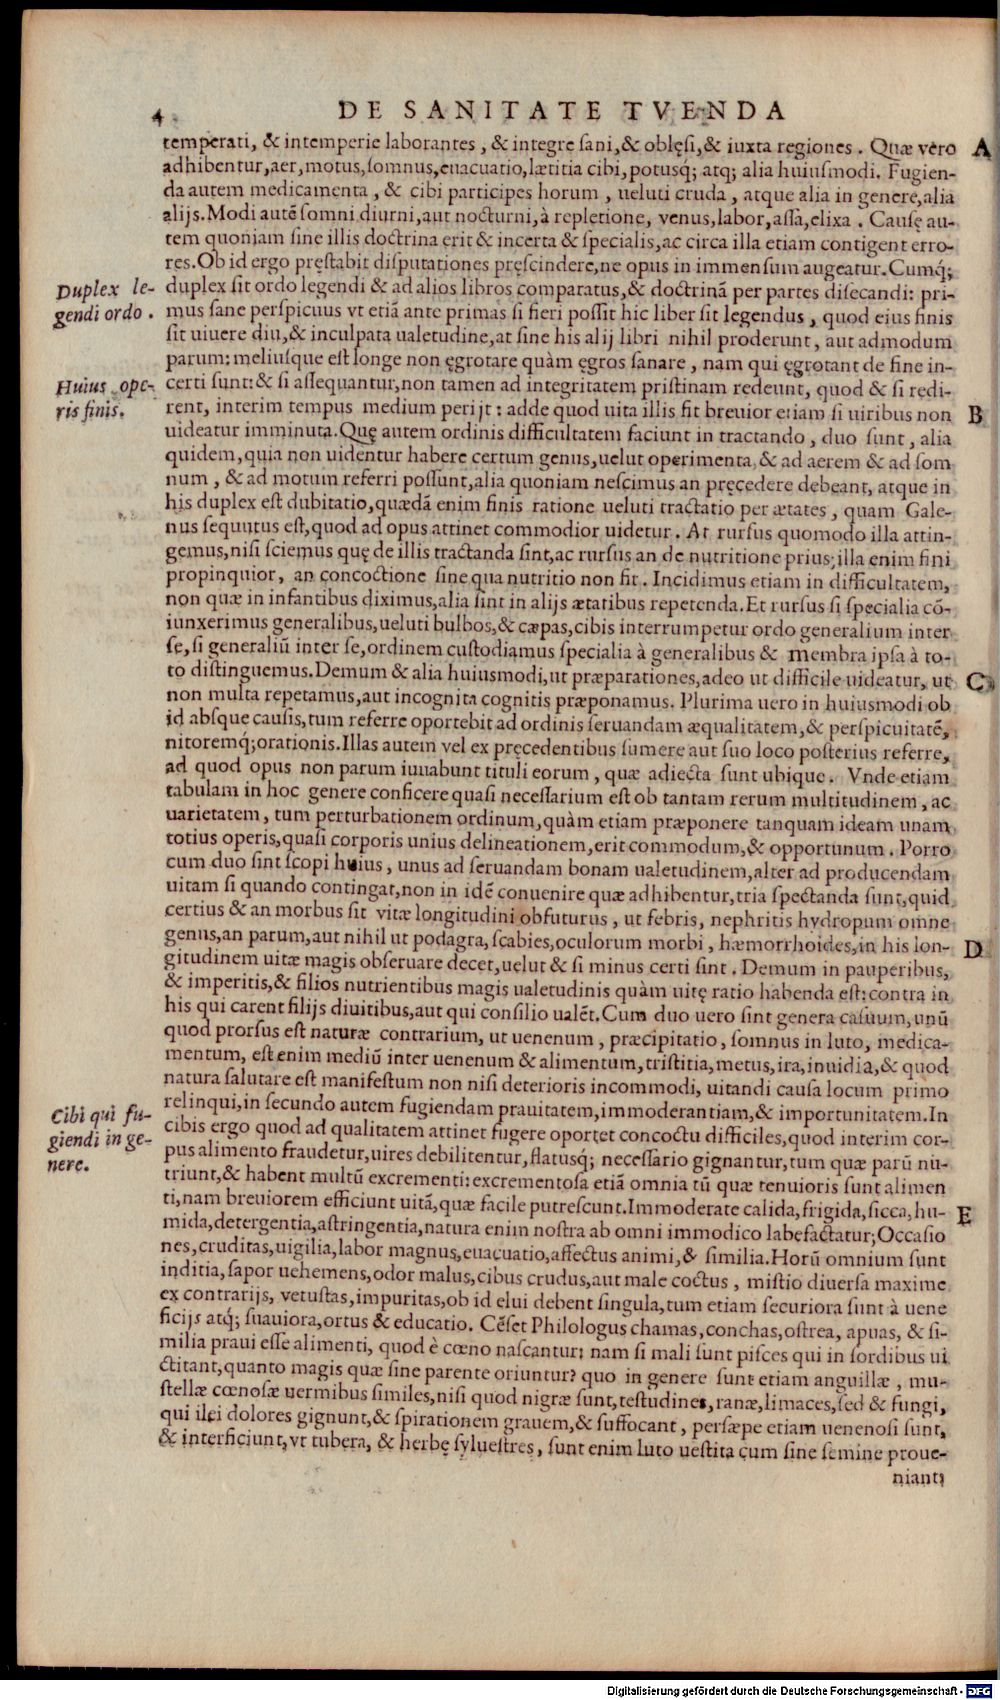 4
DE SANITATE TVENDA
temperati, & intemperie laborantes, & integre ſani, & oblęſi, & iuxta regiones. Quæ vero A
adhibentur, aer, motus, ſomnus, euacuatio, lætitia cibi, potusq; atq; alia huiuſmodi. Fugien-
da autem medicamenta, & cibi participes horum, ueluti cruda, atque alia in genere, alia
alijs. Modi autē ſomni diurni, aut nocturni, à repletione, venus, labor, aſſa, elixa. Cauſę au-
tem quoniam ſine illis doctrina erit & incerta & ſpecialis, ac circa illa etiam contigent erro-
res. Ob id ergo pręſtabit diſputationes pręſcindere, ne opus in immenſum augeatur. Cumq́;
Duplex le-
gendi ordo.
duplex ſit ordo legendi & ad alios libros comparatus, & doctrinā per partes diſecandi: pri-
mus ſane perſpicuus vt etiā ante primas ſi fieri poſſit hic liber ſit legendus, quod eius finis
ſit uiuere diu, & inculpata ualetudine, at ſine his alij libri nihil proderunt, aut admodum
parum: meliuſque eſt longe non ęgrotare quàm ęgros ſanare, nam qui ęgrotant de fine in-
Huius ope-
ris finis.
certi ſunt: & ſi aſſequantur, non tamen ad integritatem priſtinam redeunt, quod & ſi redi-
rent, interim tempus medium perijt: adde quod uita illis fit breuior etiam ſi uiribus non B
uideatur imminuta. Quę autem ordinis difficultatem faciunt in tractando, duo ſunt, alia
quidem, quia non uidentur habere certum genus, uelut operimenta, & ad aerem & ad ſom
num, & ad motum referri poſſunt, alia quoniam neſcimus an pręcedere debeant, atque in
his duplex eſt dubitatio, quædā enim finis ratione ueluti tractatio per ætates, quam Gale-
nus ſequutus eſt, quod ad opus attinet commodior uidetur. At rurſus quomodo illa attin-
gemus, niſi ſciemus quę de illis tractanda ſint, ac rurſus an de nutritione prius; illa enim fini
propinquior, an concoctione ſine qua nutritio non fit. Incidimus etiam in difficultatem,
non quæ in infantibus diximus, alia ſint in alijs ætatibus repetenda. Et rurſus ſi ſpecialia cō-
iunxerimus generalibus, ueluti bulbos, & cæpas, cibis interrumpetur ordo generalium inter
ſe, ſi generaliū inter ſe, ordinem cuſtodiamus ſpecialia à generalibus & membra ipſa à to-
to diſtinguemus. Demum & alia huiuſmodi, ut præparationes, adeo ut difficile uideatur, ut C
non multa repetamus, aut incognita cognitis præponamus. Plurima uero in huiuſmodi ob
id abſque cauſis, tum referre oportebit ad ordinis ſeruandam æqualitatem, & perſpicuitatē,
nitoremq́; orationis. Illas autem vel ex pręcedentibus ſumere aut ſuo loco poſterius referre,
ad quod opus non parum iuuabunt tituli eorum, quæ adiecta ſunt ubique. Vnde etiam
tabulam in hoc genere conficere quaſi neceſſarium eſt ob tantam rerum multitudinem, ac
uarietatem, tum perturbationem ordinum, quàm etiam præponere tanquam ideam unam
totius operis, quaſi corporis unius delineationem, erit commodum, & opportunum. Porro
cum duo ſint ſcopi huius, unus ad ſeruandam bonam ualetudinem, alter ad producendam
uitam ſi quando contingat, non in idē conuenire quæ adhibentur, tria ſpectanda ſunt, quid
certius & an morbus ſit vitæ longitudini obfuturus, ut febris, nephritis hydropum omne
genus, an parum, aut nihil ut podagra, ſcabies, oculorum morbi, hæmorrhoides, in his lon- D
gitudinem uitæ magis obſeruare decet, uelut & ſi minus certi ſint. Demum in pauperibus,
& imperitis, & filios nutrientibus magis ualetudinis quàm uitę ratio habenda eſt: contra in
his qui carent filijs diuitibus, aut qui conſilio ualēt. Cum duo uero ſint genera caſuum, unū
quod prorſus eſt naturæ contrarium, ut uenenum, præcipitatio, ſomnus in luto, medica-
mentum, eſt enim mediū inter uenenum & alimentum, triſtitia, metus, ira, inuidia, & quod
natura ſalutare eſt manifeſtum non niſi deterioris incommodi, uitandi cauſa locum primo
Cibi qui fu-
giendi in ge-
nere.
relinqui, in ſecundo autem fugiendam prauitatem, immoderantiam, & importunitatem. In
cibis ergo quod ad qualitatem attinet fugere oportet concoctu difficiles, quod interim cor-
pus alimento fraudetur, uires debilitentur, flatusq́; neceſſario gignantur, tum quæ parū nu-
triunt, & habent multū excrementi: excrementoſa etiā omnia tū quæ tenuioris ſunt alimen
ti, nam breuiorem efficiunt uitā, quæ facile putreſcunt. Immoderate calida, frigida, ſicca, hu- E
mida, detergentia, aſtringentia, natura enim noſtra ab omni immodico labefactatur; Occaſio
nes, cruditas, uigilia, labor magnus, euacuatio, affectus animi, & ſimilia. Horū omnium ſunt
inditia, ſapor uehemens, odor malus, cibus crudus, aut male coctus, miſtio diuerſa maxime
ex contrarijs, vetuſtas, impuritas, ob id elui debent ſingula, tum etiam ſecuriora ſunt à uene
ficijs atq́; ſuauiora, ortus & educatio. Cēſet Philologus chamas, conchas, oſtrea, apuas, & ſi-
milia praui eſſe alimenti, quod è cœno naſcantur: nam ſi mali ſunt piſces qui in ſordibus ui
ctitant, quanto magis quæ ſine parente oriuntur? quo in genere ſunt etiam anguillæ, mu-
ſtellæ cœnoſæ uermibus ſimiles, niſi quod nigræ ſunt, teſtudines, ranæ, limaces, ſed & fungi,
qui ilei dolores gignunt, & ſpirationem grauem, & ſuffocant, perſæpe etiam uenenoſi ſunt,
& interficiunt, vt tubera, & herbę ſylueſtres, ſunt enim luto ueſtita cum ſine ſemine proue-
niant;
Digitalisierung gefördert durch die Deutsche Forschungsgemeinschaft - DFG